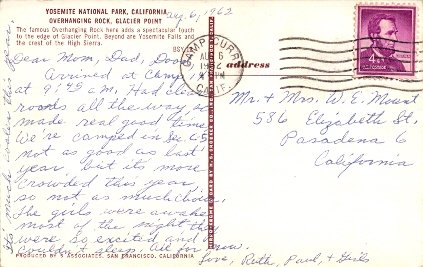 YOSEMITE NATIONAL PARK, CALIFORNIA
OVERHANGING ROCK, GLACIER POINT
The famous Overhanging Rock here adds a spectacular touch
to the edge of Glacier Point. Beyond are Yosemite Falls and
the crest of the High Sierra.
Aug. 6, 1962
Dear Mom, Dad,
Arrived at Camp
at 9:45 am. Had clear
roads all the way, so
made real good time.
We're camped in Sec
not as good as last
year, but its more
crowded this year,
so not as much choice.
The girls were awake
most of the night they
were so excited and
couldn't sleep. All for now.
Love, Ruth, Paul, & Girls
It's much cooler this year.
PRODUCED BY ASSOCIATES, SAN FRANCISCO, CALIFORNIA
CAMP CURRY
AUG 6
1962
CALIF.
address
4¢
Mr. & Mrs. W. E. Mount
586 Elizabeth St.
Pasadena 6
California